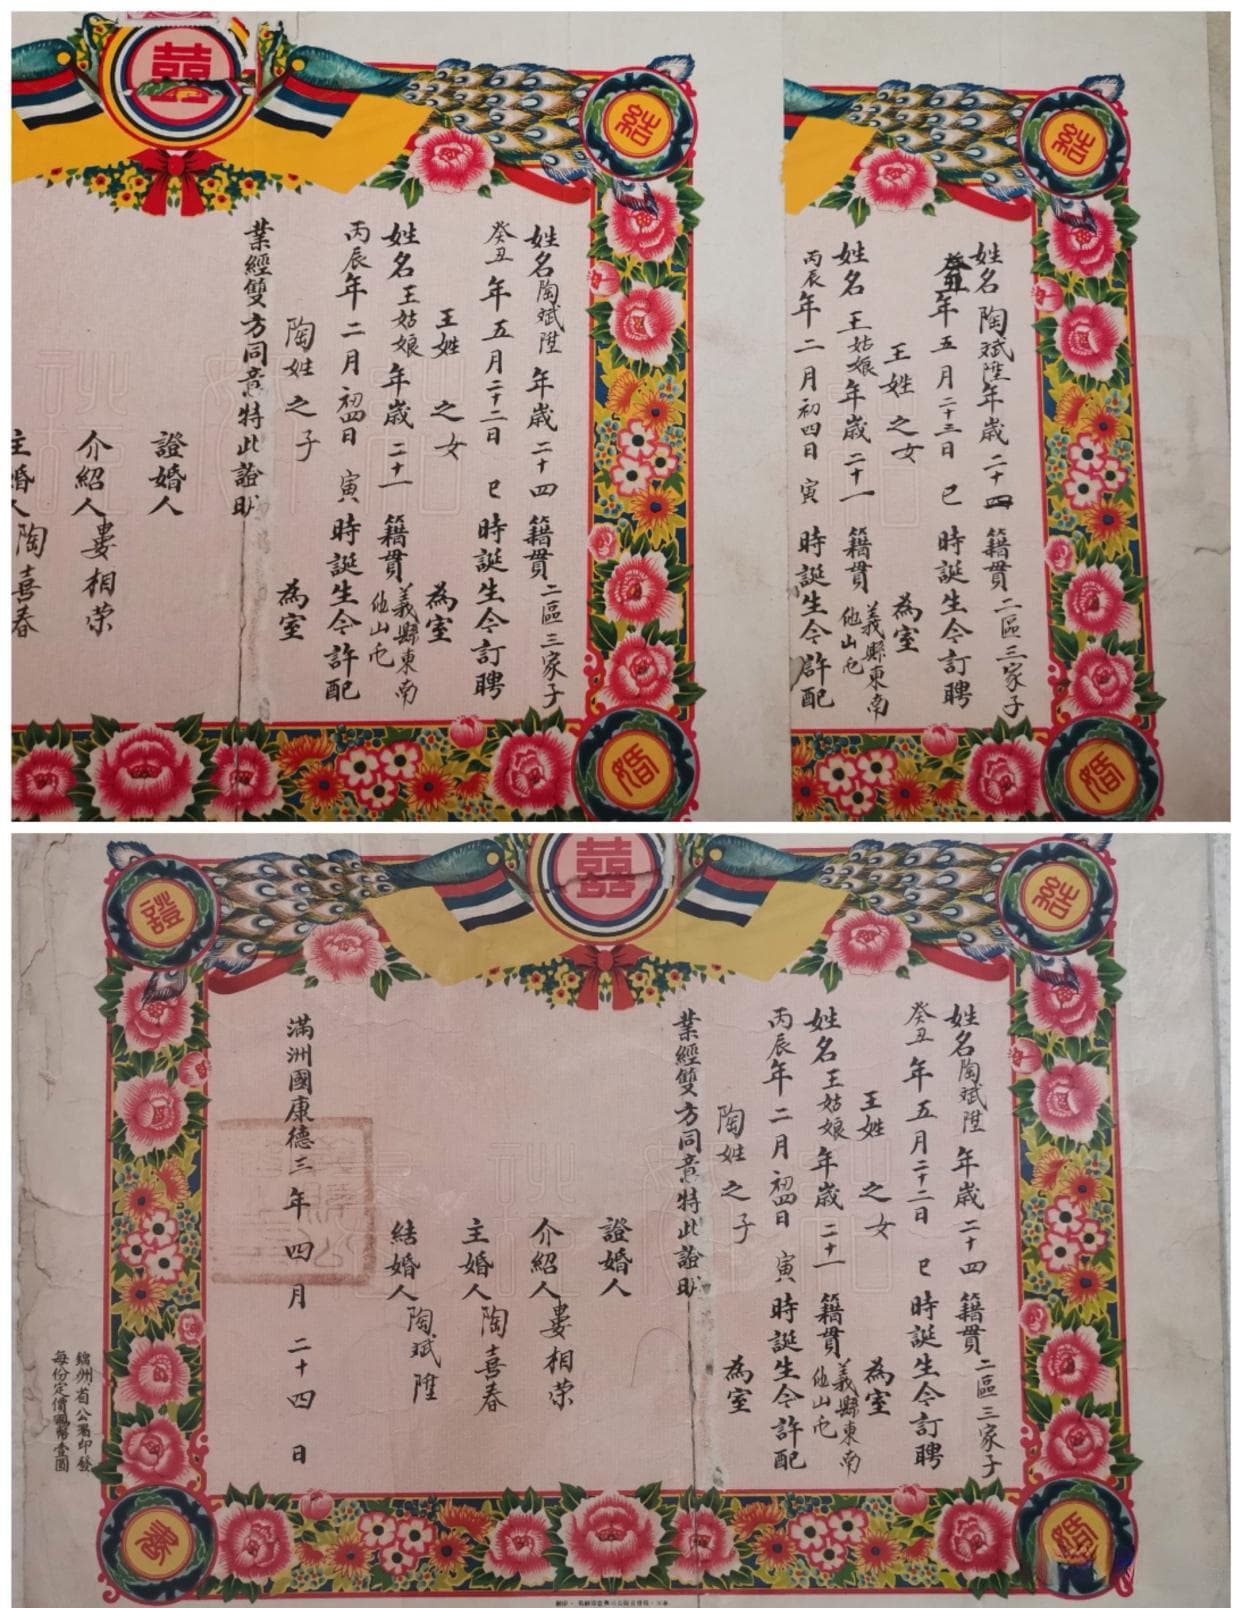 囍
結
婚
姓名陶斌陞 年歲二十四 籍貫二區三家子
癸丑年五月二十二日 巳時誕生今訂聘
王姓之女 為室
姓名王姑娘 年歲二十一 籍貫義縣東南
他山屯
丙辰年二月初四日 寅時誕生今許配
陶姓之子 為室
業經雙方同意特此證明
證婚人
介紹人 婁相荣
主婚人 陶喜春
結
婚
姓名陶斌陞 年歲二十四 籍貫二區三家子
年五月二十三日 巳時誕生今訂聘
王姓之女 為室
姓名王姑娘 年歲二十一 籍貫義縣東南
他山屯
丙辰年二月初四日 寅時誕生今許配
囍
結
婚
證
書
姓名陶斌陞 年歲二十四 籍貫二區三家子
癸丑年五月二十二日 巳時誕生今訂聘
王姓之女 為室
姓名王姑娘 年歲二十一 籍貫義縣東南
他山屯
丙辰年二月初四日 寅時誕生今許配
陶姓之子 為室
業經雙方同意特此證明
證婚人
介紹人 婁相荣
主婚人 陶喜春
結婚人 陶斌陞
滿洲國康德三年四月二十四日
錦州省公署印發
每份定價國幣壹圓